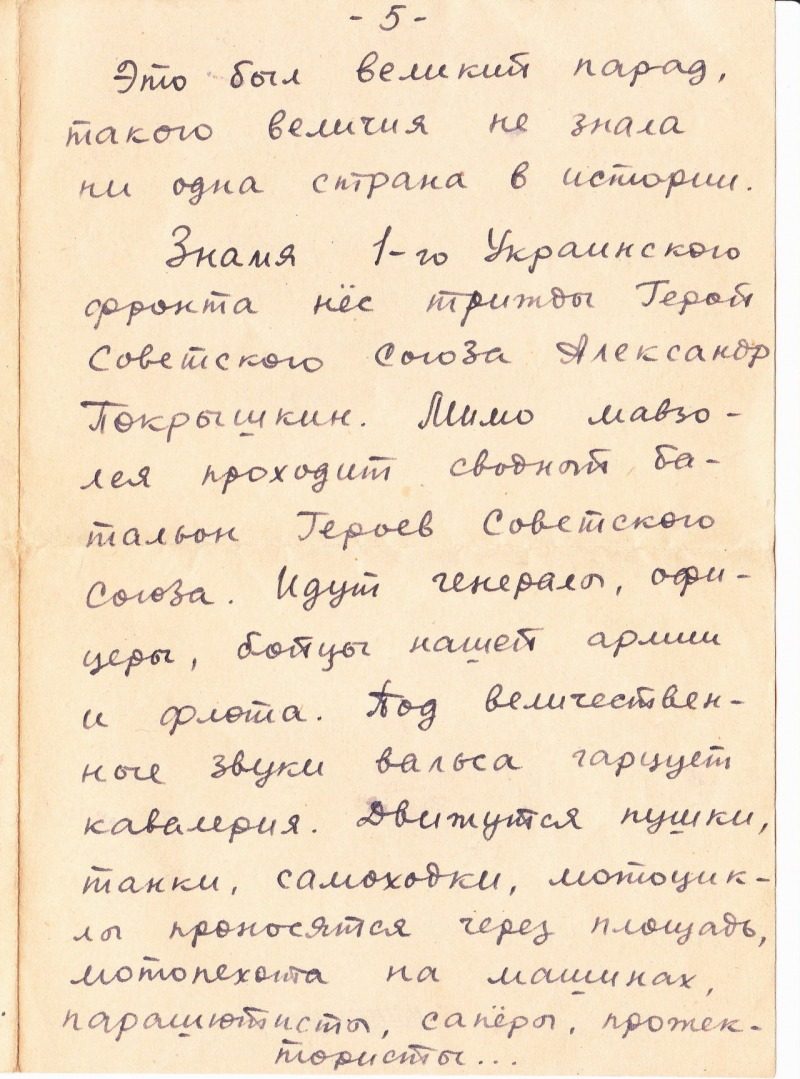 - 5 -
Это был великий парад,
такого величия не знала
ни одна страна в истории.
Знамя 1-го Украинского
фронта нёс трижды Герой
Советского Союза Александр
Покрышкин. Мимо мавзо-
лея проходит сводный ба-
тальон Героев Советского
Союза. Идут генералы, офи-
церы, бойцы нашей армии
и флота. Под величествен-
ные звуки вальса гарцует
кавалерия. Движутся пушки,
танки, самоходки, мотоцик-
лы проносятся через площадь,
мотопехота на машинах,
парашютисты, сапёры, прожек-
тористы...